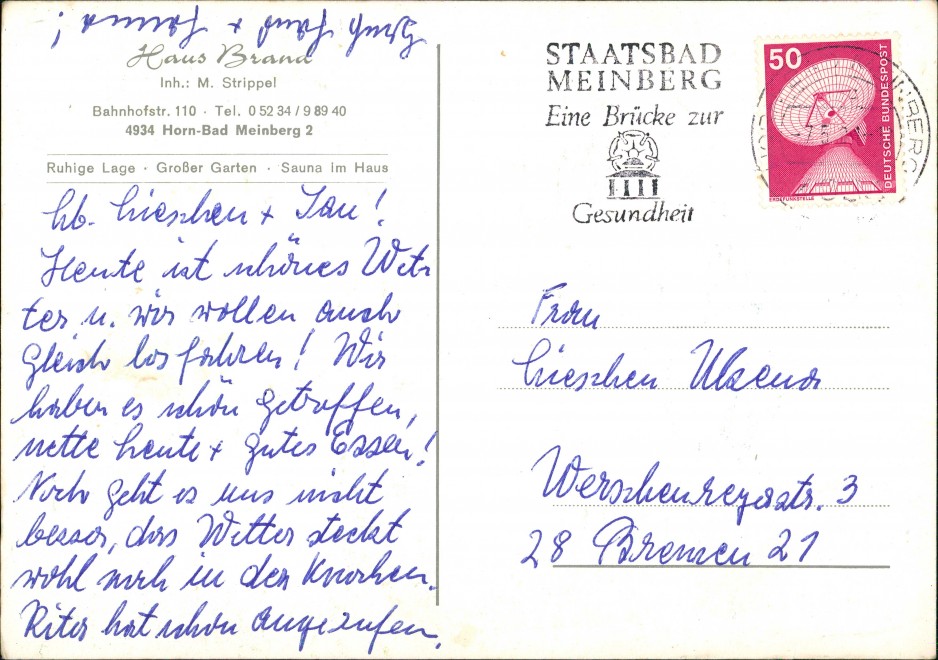 Haus Brand
Inh.: M. Strippel
Bahnhofstr. 110 · Tel. 0 52 34 / 9 89 40
4934 Horn-Bad Meinberg 2
Ruhige Lage · Großer Garten · Sauna im Haus
lb. Lieschen + Jan!
Heute ist schönes Wet-
ter u. wir wollen auch
gleich losfahren! Wir
haben es schön getroffen,
nette Leute + gutes Essen!
Noch geht es uns nicht
besser, das Wetter steckt
wohl noch in den Knochen.
hat schon angerufen.
Gruß +
STAATSBAD
MEINBERG
Eine Brücke zur
Gesundheit
50
DEUTSCHE BUNDESPOST
ERDEFUNKSTELLE
Frau
Lieschen
28 Bremen 21